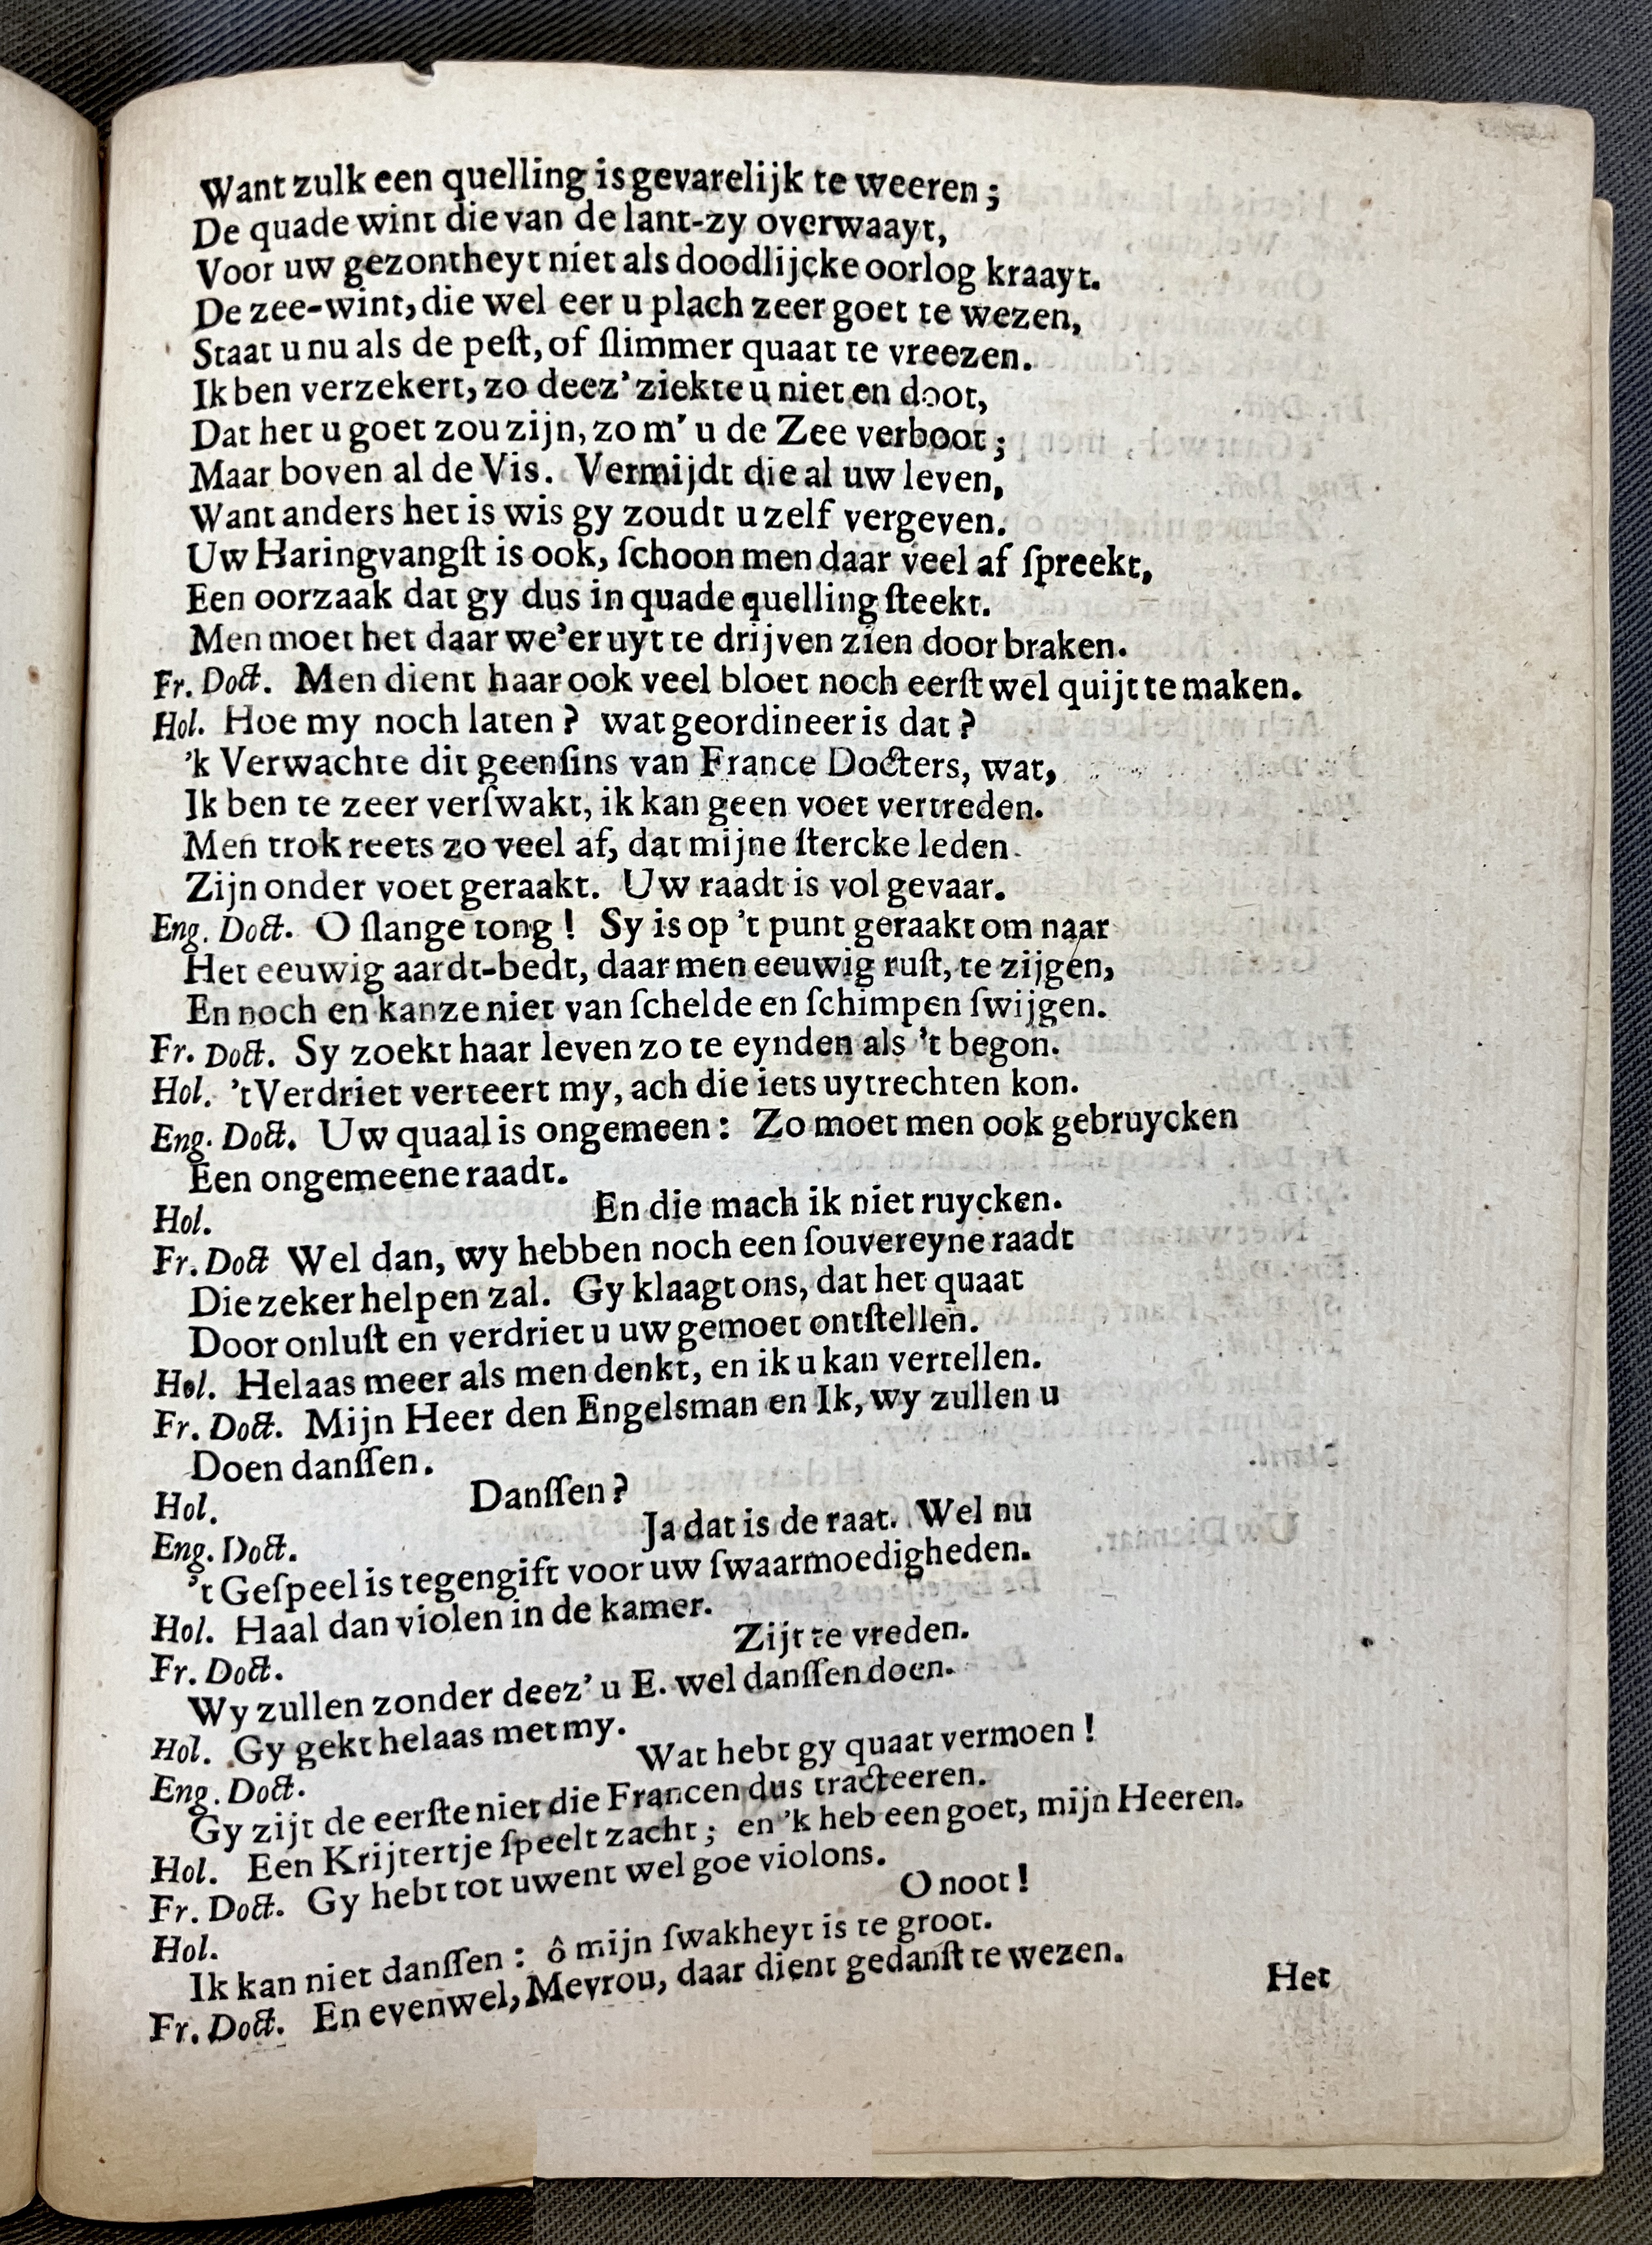 Want zulk een quelling is gevarelijk te weeren;
De quade wint die van de lant-zy overwaayt,
Voor uw gezontheyt niet als doodlijcke oorlog kraayt.
De zee-wint, die wel eer u plach zeer goet te wezen,
Staat u nu als de peſt, of ſlimmer quaat te vreezen.
Ik ben verzekert, zo deez' ziekte u niet en doot,
Dat het u goet zou zijn, zo m' u de Zee verboot;
Maar boven al de Vis. Vermijdt die al uw leven,
Want anders het is wis gy zoudt u zelf vergeven.
Uw Haringvangſt is ook, ſchoon men daar veel af ſpreekt,
Een oorzaak dat gy dus in quade quelling ſteekt.
Men moet het daar we'er uyt te drijven zien door braken.
Fr. Doct. Men dient haar ook veel bloet noch eerſt wel quijt te maken.
Hol. Hoe my noch laten? wat geordineer is dat?
'k Verwachte dit geenſins van France Docters, wat,
Ik ben te zeer verſwakt, ik kan geen voet vertreden.
Men trok reets zo veel af, dat mijne ſtercke leden
Zijn onder voet geraakt. Uw raadt is vol gevaar.
Eng. Doct. O ſlange tong! Sy is op 't punt geraakt om naar
Het eeuwig aardt-bedt, daar men eeuwig ruſt, te zijgen,
En noch en kanze niet van ſchelde en ſchimpen ſwijgen.
Fr. Doct. Sy zoekt haar leven zo te eynden als 't begon.
Hol. 't Verdriet verteert my, ach die iets uytrechten kon.
Eng. Doct. Uw quaal is ongemeen: Zo moet men ook gebruycken
Een ongemeene raadt.
Hol. En die mach ik niet ruycken.
Fr. Doct Wel dan, wy hebben noch een ſouvereyne raadt
Die zeker helpen zal. Gy klaagt ons, dat het quaat
Door onluſt en verdriet u uw gemoet ontſtellen.
Hol. Helaas meer als men denkt, en ik u kan vertellen.
Fr. Doct. Mijn Heer den Engelsman en Ik, wy zullen u
Doen danſſen.
Hol. Danſſen?
Eng. Doct. Ja dat is de raat. Wel nu
't Geſpeel is tegengift voor uw ſwaarmoedigheden.
Hol. Haal dan violen in de kamer.
Fr. Doct. Zijt te vreden.
Wy zullen zonder deez' u E. wel danſſen doen.
Hol. Gy gekt helaas met my.
Eng. Doct. Wat hebt gy quaat vermoen!
Gy zijt de eerſte niet die Francen dus tracteeren.
Hol. Een Krijtertje ſpeelt zacht; en 'k heb een goet, mijn Heeren.
Fr. Doct. Gy hebt tot uwent wel goe violons.
Hol. O noot!
Ik kan niet danſſen: ô mijn ſwakheyt is te groot.
Fr. Doct. En evenwel, Mevrou, daar dient gedanſt te wezen.
Het